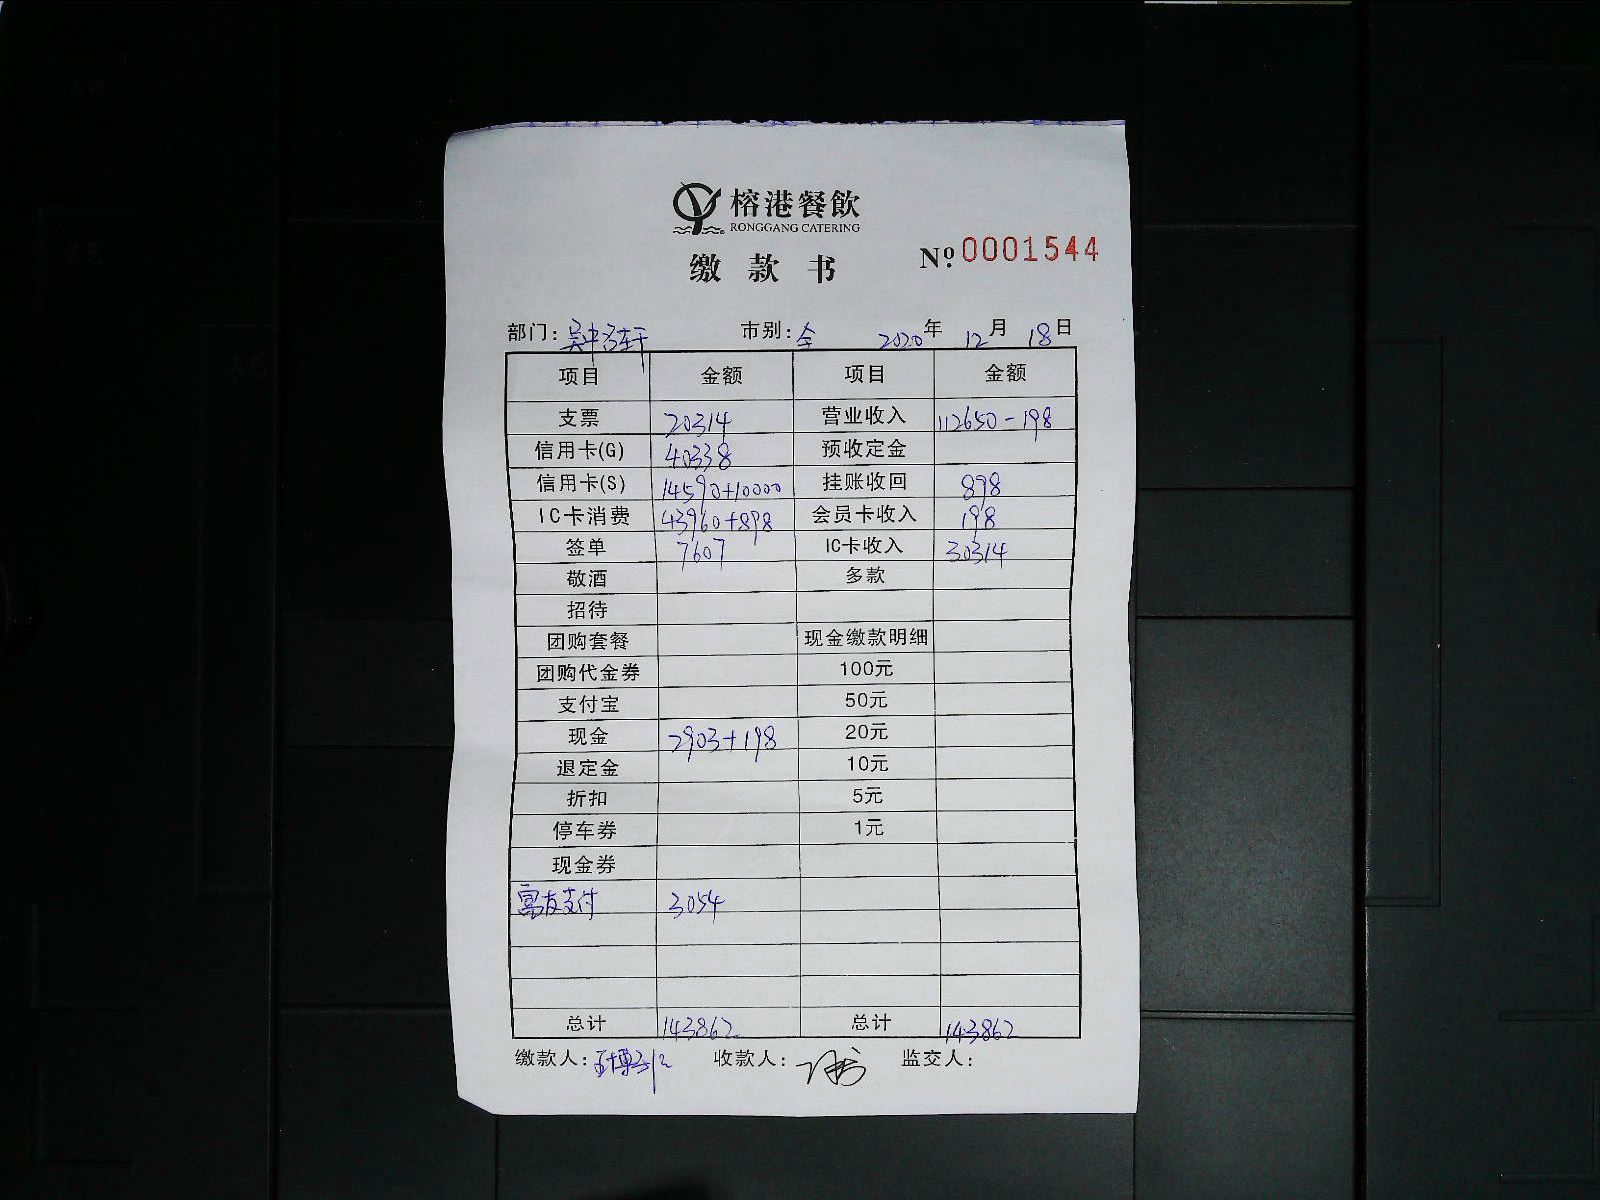 榕港餐飲
RONGGANG CATERING
缴款书 Nº 0001544
部门: 吴中 轩 市别: 全 2020年 12月 18日
项目 金额 项目 金额
支票 20314 营业收入 112650-198
信用卡(G) 40338 预收定金
信用卡(S) 14590+10000 挂账收回 898
IC卡消费 43960+898 会员卡收入 198
签单 7607 IC卡收入 30314
敬酒 多款
招待
团购套餐 现金缴款明细
团购代金券 100元
支付宝 50元
现金 2903+198 20元
退定金 10元
折扣 5元
停车券 1元
现金券
富友支付 3054
总计 143862 总计 143862
缴款人: 收款人: 监交人: